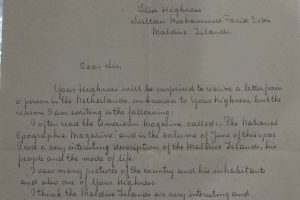 His Highness
Sultan Mohammed Farid Didi
Maldive Islands.
Dear Sir,
Your Highness will be surprised to receive a letter from
a person in the Netherlands, unknown to Your Highness, but the
reason I am writing is the following:
I often read the American magazine called: „The National
Geographic Magazine" and in the volume of June of this year
I read a very interesting description of the Maldive Islands, his
people and the mode of life.
I saw many pictures of the country and his inhabitants
and also one of Your Highness.
I think the Maldive Islands are very interesting and